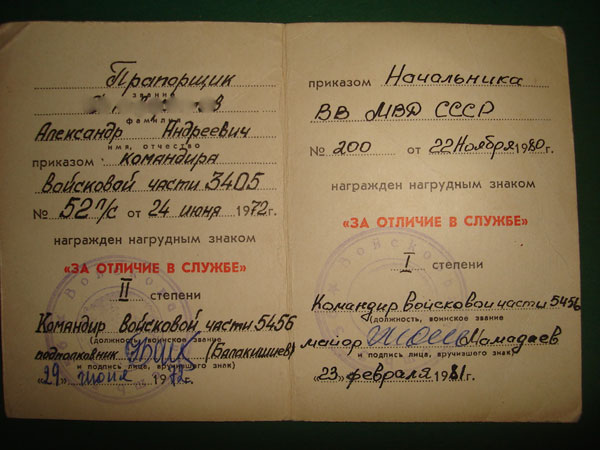 Прапорщик
звание
фамилия
Александр Андреевич
имя, отчество
приказом командира
Войсковой части 3405
№ 52 п/с от 24 июня 1972 г.
награжден нагрудным знаком
«ЗА ОТЛИЧИЕ В СЛУЖБЕ»
II степени
Командир Войсковой части 5456
(должность, воинское звание
подполковник (Балакишиев)
и подпись лица, вручившего знак)
«29» июня 1972 г.
приказом Начальника
ВВ МВД СССР
№ 200 от 22 Ноября 1980 г.
награжден нагрудным знаком
«ЗА ОТЛИЧИЕ В СЛУЖБЕ»
I степени
Командир войсковой части 5456
(должность, воинское звание
майор Мамадаев
и подпись лица, вручившего знак)
«23» февраля 1981 г.